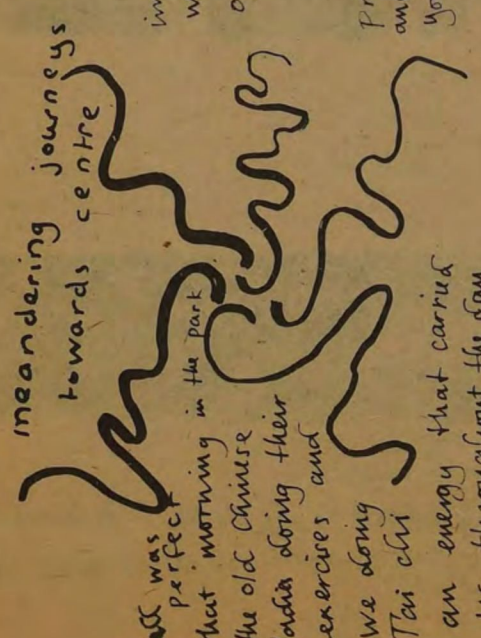 meandering journeys
towards centre
all was
perfect
that morning in the park
the old chinese
ladies doing their
exercises and
we doing
Tai chi
an energy that carried
us throughout the day
in
w
o
Pr
an
yo